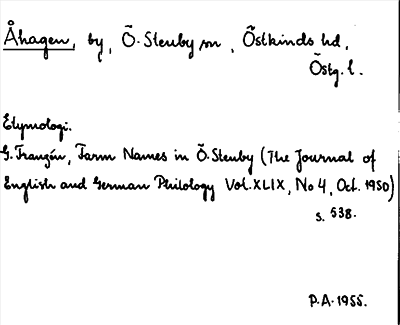 Åhagen, by, Ö. Stenby sn, Östkinds hd,
Östg. l.
Etymologi.
G. Franzén, Farm Names in Ö. Stenby (The Journal of
English and German Philology Vol. XLIX, No 4, Oct. 1950)
s. 538.
P.A. 1955.